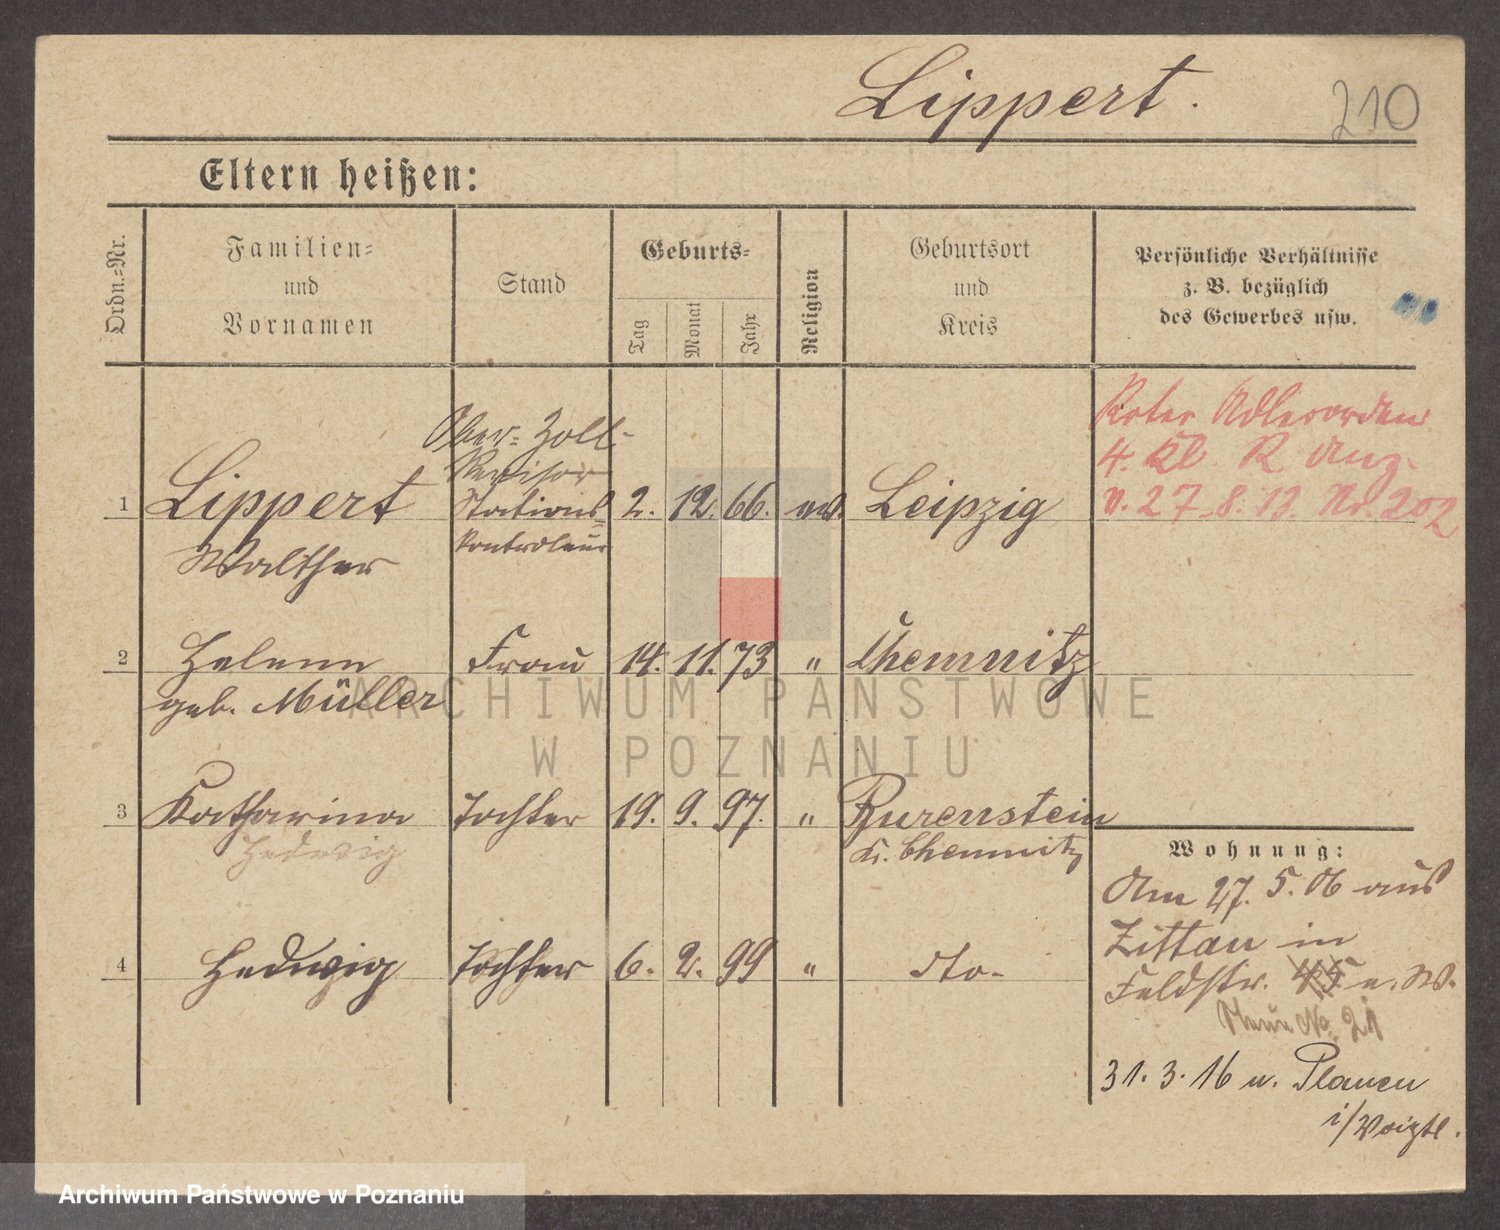 Lippert.
210
Eltern heißen:
Ordn.=Nr.
Familien=
und
Vornamen
Stand
Geburts=
Tag
Monat
Jahr
Religion
Geburtsort
und
Kreis
Persönliche Verhältnisse
z. B. bezüglich
des Gewerbes usw.
Roter Adlerorden
4. Kl R Anz.
v. 27.8.13. No. 202
Ober-Zoll-
Revisor
1 Lippert Stations= 2. 12. 66. ev. Leipzig
Walther kontroleur
2 Helene Frau 14. 11. 73 " Chemnitz
geb. Müller
3 Katharina Tochter 19. 9. 97. "
Hedwig K. Chemnitz
4 Hedwig Tochter 6. 2. 99 " dto.
Wohnung:
Am 27. 5. 06 aus
Zittau in
Feldstr. 45 a. W.
Neue No 21
31. 3. 16 n. Plauen
i/Voigtl.
ARCHIWUM PAŃSTWOWE
W POZNANIU
Archiwum Państwowe w Poznaniu